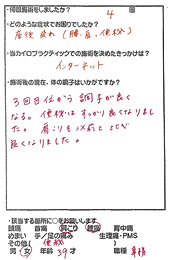 ・何回施術をしましたか？
4 回
・どのような症状でお困りでしたか？
産後疲れ（腰、肩、便秘）
・当カイロプラクティックでの施術を決めたきっかけは？
インターネット
・施術後の現在、体の調子はいかがですか？
3回目位から調子が良く
なる。便秘はすっかり良くなりまし
た。肩こりも以前と比べ
良くなりました。
・該当する箇所に○をお願いします
頭痛 首痛 肩こり 腰痛 背中痛
めまい 手／足の痛み 生理痛・PMS
その他（ 便秘 ）
男 女 年齢 39才 職種 事務